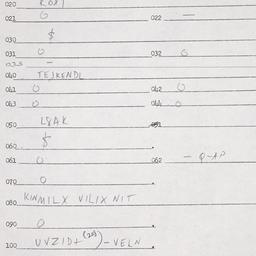 020
021 0 022 —
030 $
031 0 032 0
035 —
040 TEJKENDL
041 0 042 0
043 0 044 0
050 L8AK
060 $
061 0 062 — Q-AP
070 0
080 KINMILX VILIX NIT
090 0
100 UVZIDT (20) - VELN